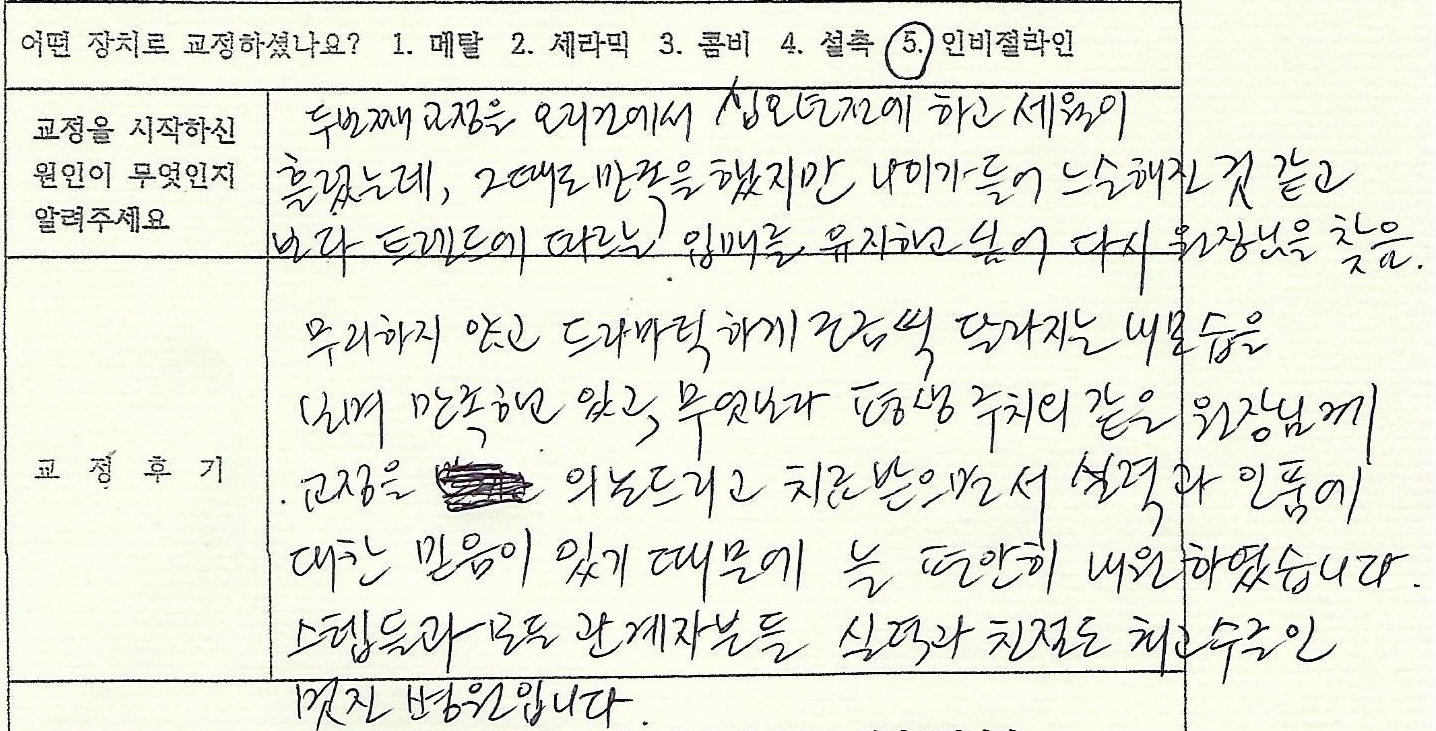 어떤 장치로 교정하셨나요? 1. 메탈 2. 세라믹 3. 콤비 4. 설측 5. 인비절라인
교정을 시작하신
원인이 무엇인지
알려주세요
두번째 교정을 오리건에서 십오년전에 하고 세월이
흘렀는데, 그때도 만족을 했지만 나이가 들어 느슨해진 것 같고
보다 트렌드에 따르는 입매를 유지하고 싶어 다시 원장님을 찾음.
교 정 후 기
무리하지 않고 드라마틱하게 조금씩 달라지는 내모습을
보며 만족하고 있고, 무엇보다 평생 주치의 같은 원장님께
교정을 의논드리고 치료받으면서 실력과 인품에
대한 믿음이 있기 때문에 늘 편안히 내원하였습니다.
스텝들과 모든 관계자분들 실력과 친절도 최고수준인
멋진 병원입니다.